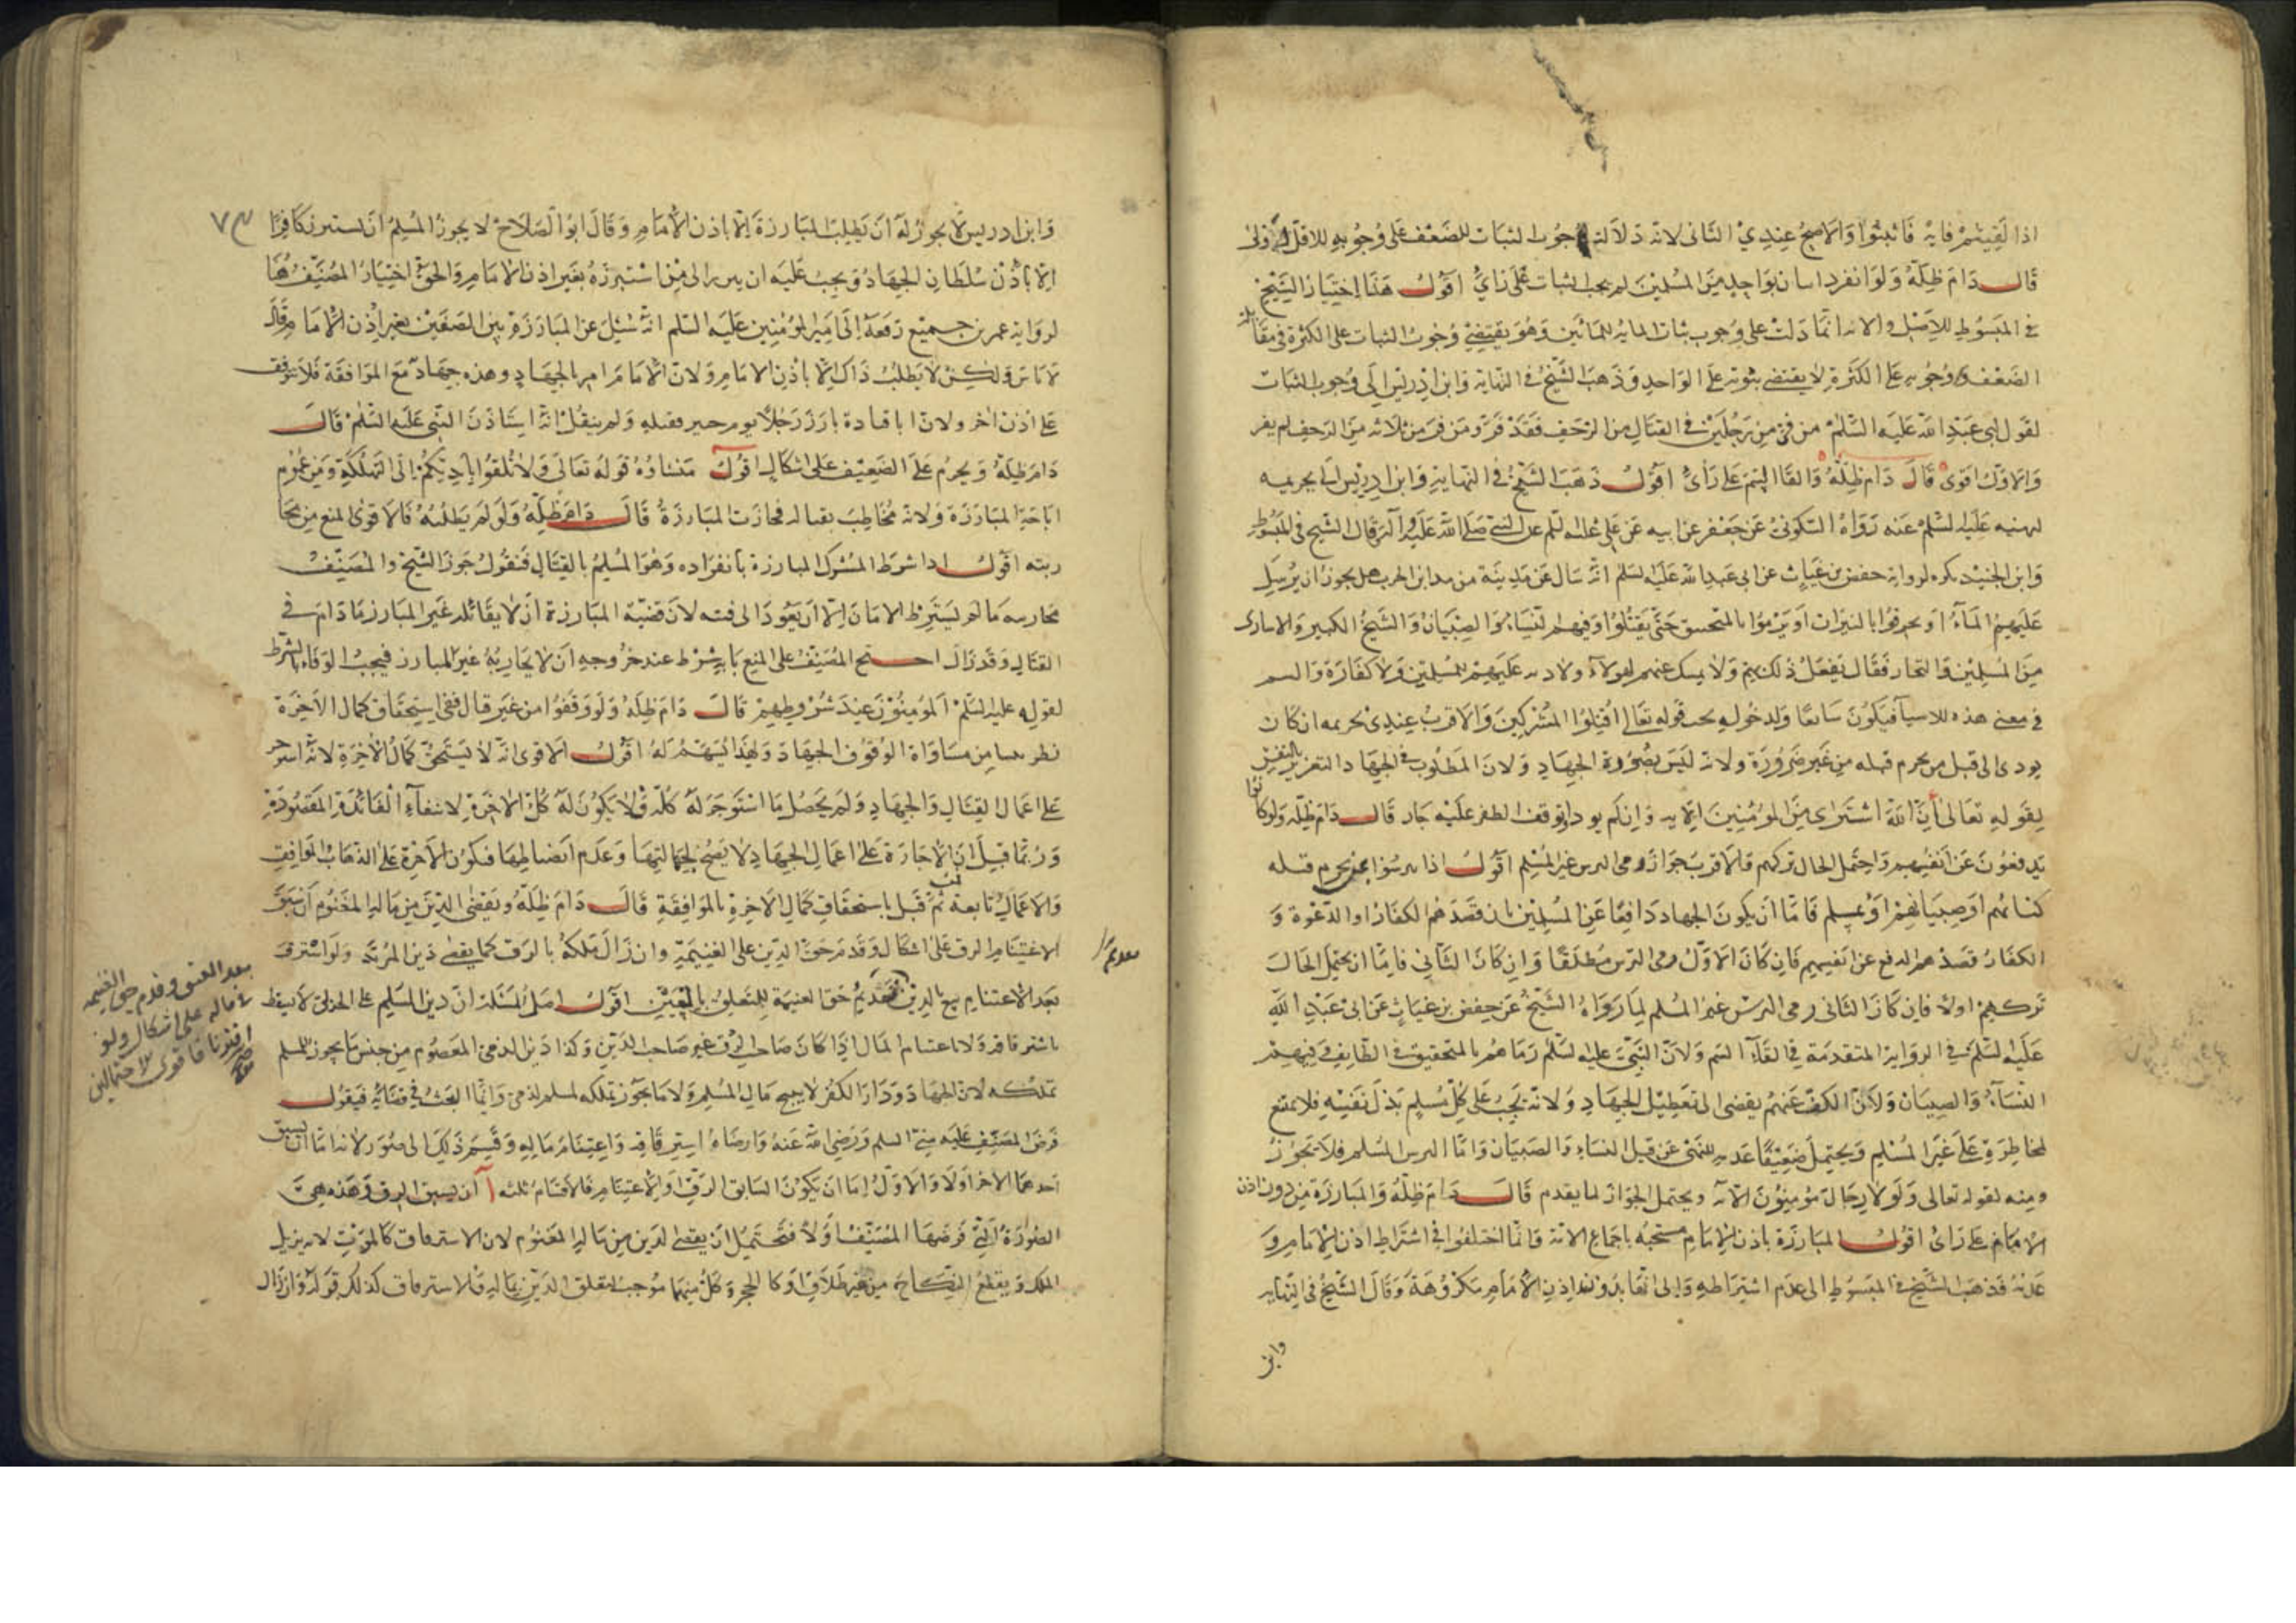 اذا لقيتم فاية فاثبتوا والاصح عندي الثاني لانه دلالته وجوب الثبات للضعف على وجوبه للاقل اولى
قال دام ظله ولو انفرد اثنان بواحد من المسلمين لم يجب الثبات على راي اقول هذا اختيار الشيخ
في المبسوط للاصل ولانه انما دلت على وجوب ثبات المائة للمائتين وهو يقتضي وجوب الثبات على الكثرة في مقابلة
الضعف ووجوبه على الكثرة لا يقتضي ثبوته على الواحد وذهب الشيخ في النهاية وابن ادريس الى وجوب الثبات
لقول ابي عبد الله عليه السلم من فر من رجلين في القتال من الزحف فقد فر ومن فر من ثلاثة من الزحف لم يفر
والاول اقوى قال دام ظله والقاء السم على راي اقول ذهب الشيخ في النهاية وابن ادريس الى تحريمه
لنهيه عليه السلم عنه رواه السكوني عن جعفر عن ابيه عن علي عليه السلم عن النبي صلى الله عليه وآله وقال الشيخ في المبسوط
وابن الجنيد يكره لرواية حفص بن غياث عن ابي عبد الله عليه السلم انه سال عن مدينة من مداين الحرب هل يجوز ان يرسل
عليهم الماء او يحرقوا بالنيران او يرموا بالمنجنيق حتى يقتلوا وفيهم النساء والصبيان والشيخ الكبير والاسارى
من المسلمين والتجار فقال يفعل ذلك بهم ولا يمسك عنهم لهولاء ولا دية عليهم للمسلمين ولا كفارة والسم
في معنى هذه الاشيا فيكون سايغا ولدخوله تحت قوله تعالى اقتلوا المشركين والاقرب عندي تحريمه ان كان
يودي الى قتل من يحرم قتله من غير ضرورة ولانه ليس بصورة الجهاد ولان المطلوب في الجهاد التغرير بالنفس
لقوله تعالى ان الله اشترى من المومنين الاية وان لم يود او توقف الظفر عليه جاز قال دام ظله ولو كانوا
يدفعون عن انفسهم واحتمل الحال تركهم فالاقرب جواز رمي الترس غير المسلم اقول اذا تترسوا بمن يحرم قتله
كنسائهم او صبيانهم او بمسلم فاما ان يكون الجهاد دافعا عن المسلمين بان قصدهم الكفار او الدعوة و
الكفار قصدهم الدفع عن انفسهم فان كان الاول رمى الترس مطلقا وان كان الثاني فاما ان يحتمل الحال
تركهم اولا فان كان الثاني رمي الترس غير المسلم لما رواه الشيخ عن حفص بن غياث عن ابي عبد الله
عليه السلم في الرواية المتقدمة في القاء السم ولان النبي عليه السلم رماهم بالمنجنيق في الطايف وفيهم
النساء والصبيان ولان الكف عنهم يفضي الى تعطيل الجهاد ولانه يجب على كل مسلم بذل نفسه فلا يمتنع
لمخاطرة على غير المسلم ويحتمل ضعيفا عدمه للنهي عن قتل النساء والصبيان واما الترس المسلم فلا يجوز
ومنه لقوله تعالى ولولا رجال مومنون الاية ويحتمل الجواز لما تقدم قال دام ظله والمبارزة من دون اذن
الامام على راي اقول المبارزة باذن الامام مستحبة باجماع الامة وانما اختلفوا في اشتراط اذن الامام و
عدمه فذهب الشيخ في المبسوط الى عدم اشتراطه والى انها بدون اذن الامام مكروهة وقال الشيخ في النهاية
وابن
٧٣
وابن ادريس لا يجوز له ان يطلب المبارزة الا باذن الامام وقال ابو الصلاح لا يجوز للمسلم ان يستبرز كافرا
الا باذن سلطان الجهاد ويجب عليه ان يبرز الى من استبرزه بغير اذن الامام والحق اختيار المصنف هنا
لرواية عمر بن جميع رفعه الى امير المومنين عليه السلم انه سئل عن المبارزة بين الصفين بغير اذن الامام قال
لا باس ولكن لا يطلب ذاك الا باذن الامام ولان الامام امر بالجهاد وهذه جهاد مع الموافقة فلا يتوقف
على اذن اخر ولان ابا قتادة بارز رجلا يوم خيبر فقتله ولم ينقل انه استاذن النبي عليه السلم قال
دام ظله ويحرم على الضعيف على اشكال اقول منشاوه قوله تعالى ولا تلقوا بايديكم الى التهلكة ومن عموم
اباحة المبارزة ولانه مخاطب بقتاله فجازت المبارزة قال دام ظله ولو لم يطلبه فالاقوى المنع من محا
ربته اقول اذا شرط المشرك المبارزة بانفراده وهو المسلم بالقتال فنقول جوز الشيخ والمصنف
محاربته ما لم يشترط الامان الا ان يعود الى فئته لان قضية المبارزة ان لا يقاتله غير المبارز ما دام في
القتال وقد زال احتج المصنف على المنع بانه شرط عند خروجه ان لا يحاربه غير المبارز فيجب الوفاء بالشرط
لقوله عليه السلم المومنون عند شروطهم قال دام ظله ولو وقفوا من غير قتال ففي استحقاق كمال الاجرة
نظر ينشا من مساواة الوقوف الجهاد ولهذا يسهم له اقول الاقوى انه لا يستحق كمال الاجرة لانه استوجر
على اعمال القتال والجهاد ولم يحصل ما استوجر له كله فلا يكون له كل الاجرة لانتفاء الفائدة المقصودة
وربما قيل ان الاجارة على اعمال الجهاد لا يصح لجهالتها وعدم انضباطها فيكون الاجرة على الذهاب الموافقة
والاعمال تابعة فمن ثم قيل باستحقاق كمال الاجرة بالموافقة قال دام ظله ويقضى الدين من ماله المغنوم ان سبق
الاغتنام الرق على اشكال وقدم حق الدين على الغنيمة وان زال ملكه بالرق كما يقضى دين المرتد ولو استرق
بعد الاغتنام يبع بالدين تقديم حق الغنيمة المتعلق بالعين اقول اصل المسئلة ان دين المسلم على الحربي لا يسقط
باسترقاقه ولا باغتنام المال اذا كان صاحب الرق غير صاحب الدين وكذا دين الذمي المعصوم من جنس ما يجوز للمسلم
تملكه لان الجهاد ودار الكفر لا يبيح مال المسلم ولا ما يجوز تملكه لمسلم لذمي وانما البحث في قضائه فيقول
فرض المصنف عليه منى السلم ورضي الله عنه وارضاه استرقاقه واغتنام ماله وقسم ذلك الى صور لانه اما ان يسبق
احدهما الاخر اولا والاول اما ان يكون السابق الرق او الاغتنام فالاقسام ثلثة آ ان يسبق الرق وهذه هي
الصورة التي فرضها المصنف اولا فتحتمل ان يقضى الدين من ماله المغنوم لان الاسترقاق كالموت لانه يزيل
الملك ويقطع النكاح من غير طلاق وكالحجر وكل منهما موجب لتعلق الدين بماله فالاسترقاق كذلك قوله وان زال
بعد العتق وقدم حق الغنيمة
في ماله على اشكال ولو
اقترنا فاقوى الاحتمالين